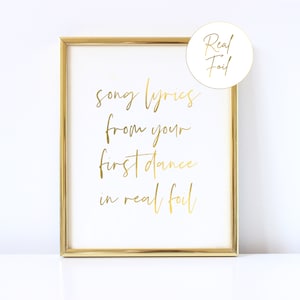 Real
Foil
song lyrics
from your
first dance
in real foil